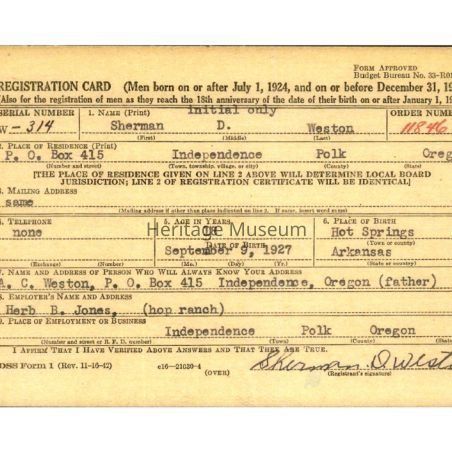 FORM APPROVED
Budget Bureau No. 33-R01
REGISTRATION CARD (Men born on or after July 1, 1924, and on or before December 31, 19
(Also for the registration of men as they reach the 18th anniversary of the date of their birth on or after January 1, 19
SERIAL NUMBER 1. NAME (Print) initial only ORDER NUMBER
W-314 Sherman D. Weston 11846
(First) (Middle) (Last)
2. PLACE OF RESIDENCE (Print)
P. O. Box 415 Independence Polk Oreg
(Number and street) (Town, township, village, or city) (County) (State)
[THE PLACE OF RESIDENCE GIVEN ON LINE 2 ABOVE WILL DETERMINE LOCAL BOARD
JURISDICTION; LINE 2 OF REGISTRATION CERTIFICATE WILL BE IDENTICAL]
3. MAILING ADDRESS
same
(Mailing address if other than place indicated on line 2. If same, insert word same)
4. TELEPHONE 5. AGE IN YEARS 6. PLACE OF BIRTH
none 18 Hot Springs
Heritage Museum
DATE OF BIRTH (Town or county)
September 9, 1927 Arkansas
(Exchange) (Number) (Mo.) (Day) (Yr.) (State or country)
7. NAME AND ADDRESS OF PERSON WHO WILL ALWAYS KNOW YOUR ADDRESS
A. C. Weston, P. O. Box 415 Independence, Oregon (father)
8. EMPLOYER'S NAME AND ADDRESS
Herb B. Jones, (hop ranch)
9. PLACE OF EMPLOYMENT OR BUSINESS
Independence Polk Oregon
(Number and street or R. F. D. number) (Town) (County) (State)
I AFFIRM THAT I HAVE VERIFIED ABOVE ANSWERS AND THAT THEY ARE TRUE.
DSS Form 1 (Rev. 11-16-42) c16—21630-4 Sherman D. West
(OVER) (Registrant's signature)